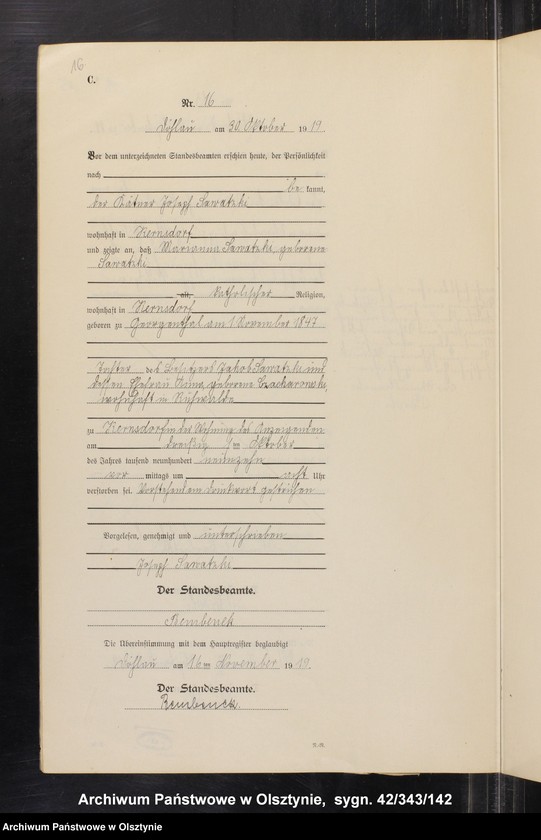 16
C.
Nr. 16
Döhlau am 30. Oktober 1919
Vor dem unterzeichneten Standesbeamten erschien heute, der Persönlichkeit
nach
be kannt,
der Kätner Joseph Sawatzki
wohnhaft in Kernsdorf
und zeigte an, daß Marianna Sawatzki geborene
Sawatzki
alt, katholischer Religion,
wohnhaft in Kernsdorf
geboren zu Georgenthal am 1. November 1847
Tochter des Besitzers Jakob Sawatzki und
dessen Ehefrau geborene
wohnhaft in
zu Kernsdorf in der Wohnung des Anzeigenden
am Oktober
des Jahres tausend neunhundert neunzehn
vor mittags um acht Uhr
verstorben sei. Vorstehend ein Druckwort gestrichen
Vorgelesen, genehmigt und unterschrieben
Joseph Sawatzki
Der Standesbeamte.
Rembenck
Die Übereinstimmung mit dem Hauptregister beglaubigt
Döhlau am November 1919.
Der Standesbeamte.
Rembenck.
Archiwum Państwowe w Olsztynie, sygn. 42/343/142
Archiwum Państwowe w Olsztynie